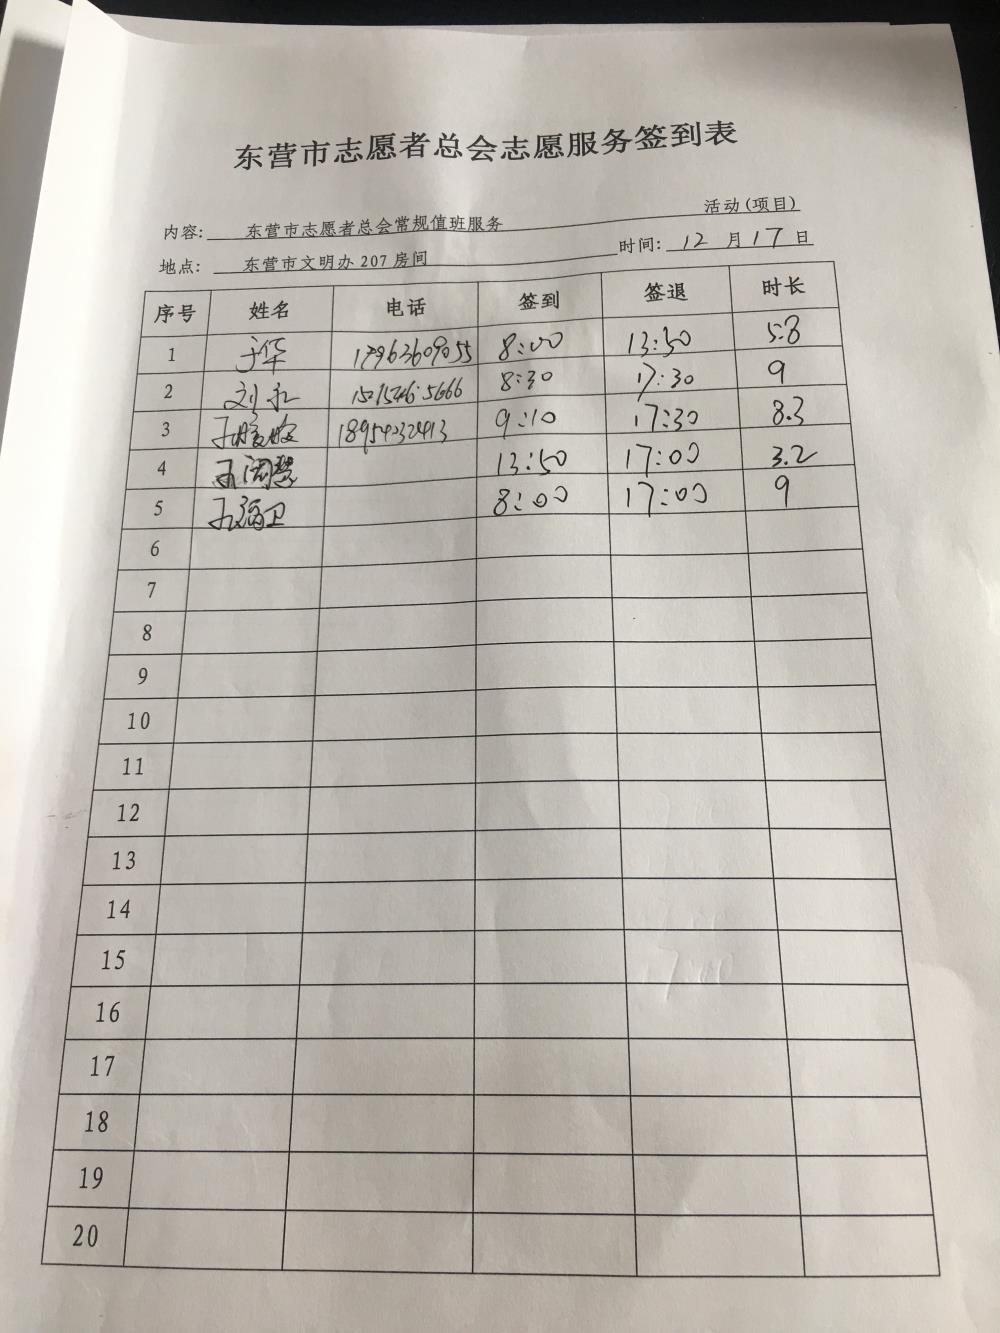 东营市志愿者总会志愿服务签到表
内容: 东营市志愿者总会常规值班服务 活动(项目)
地点: 东营市文明办 207 房间 时间: 12 月 17 日
序号 姓名 电话 签到 签退 时长
1 于华 17963609055 8:00 13:50 5.8
2 刘永 8:30 17:30 9
3 18954232413 9:10 17:30 8.3
4 13:50 17:00 3.2
5 8:00 17:00 9
6
7
8
9
10
11
12
13
14
15
16
17
18
19
20